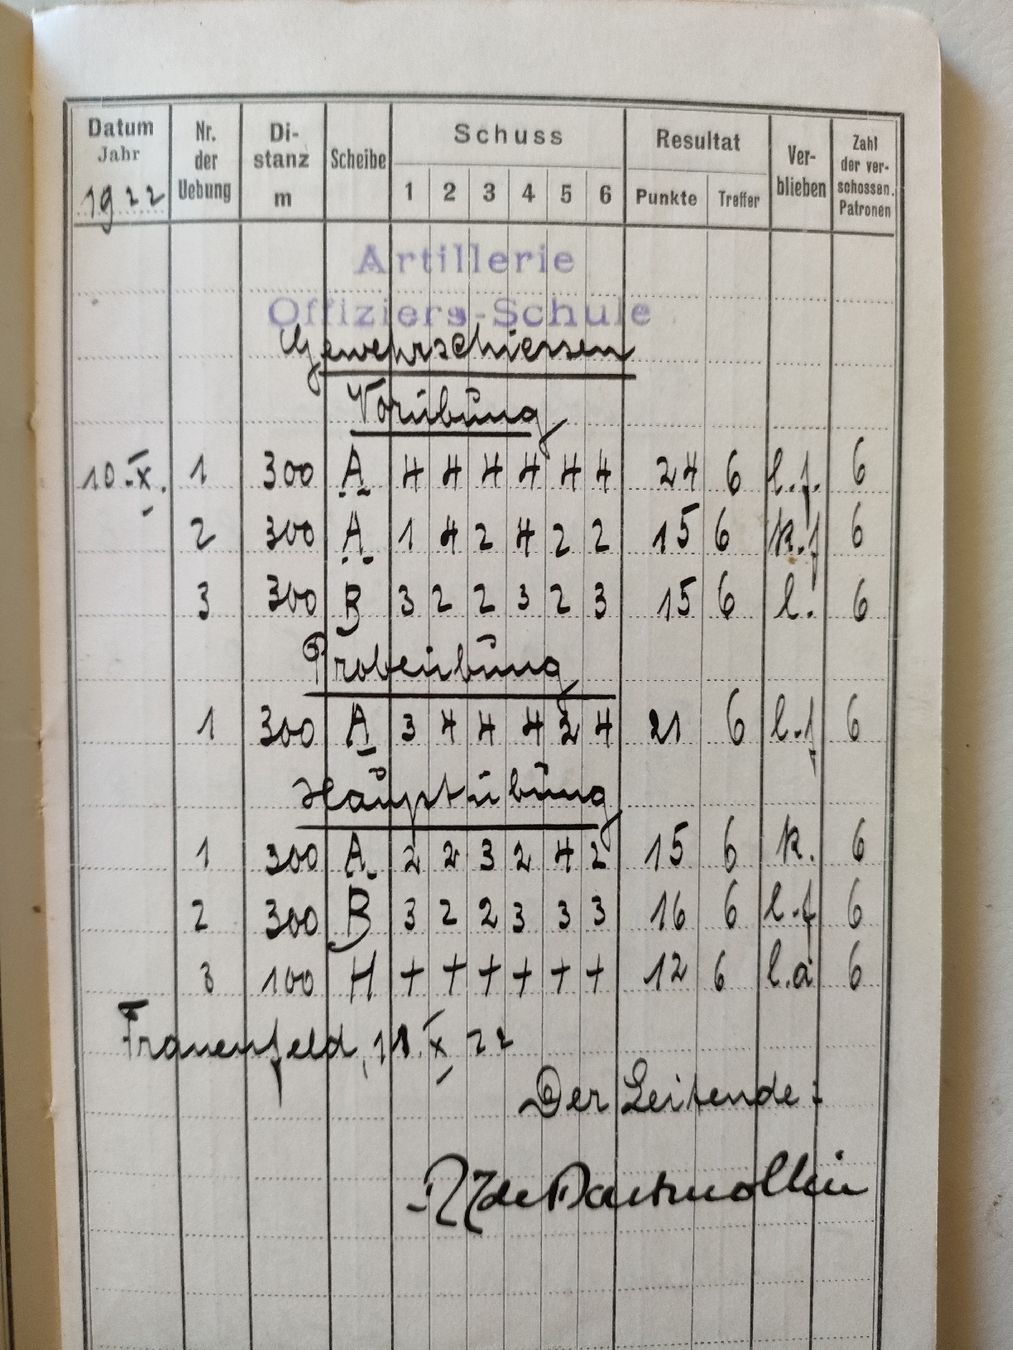 Datum Jahr 1922 Nr. der Uebung Di-stanz m Scheibe Schuss 1 2 3 4 5 6 Resultat Punkte Treffer Ver-blieben Zahl der ver-schossen. Patronen
Artillerie
Offiziers-Schule
Gewehrschiessen
Vorübung
10.X. 1 300 A 4 4 4 4 4 4 24 6 l.f. 6
2 300 A 1 4 2 4 2 2 15 6 k.f 6
3 300 B 3 2 2 3 2 3 15 6 l. 6
Probeübung
1 300 A 3 4 4 4 2 4 21 6 l.f 6
Hauptübung
1 300 A 2 2 3 2 4 2 15 6 k. 6
2 300 B 3 2 2 3 3 3 16 6 l.f 6
3 100 H + + + + + + 12 6 l.a 6
Frauenfeld, X 22
Der Leitende: